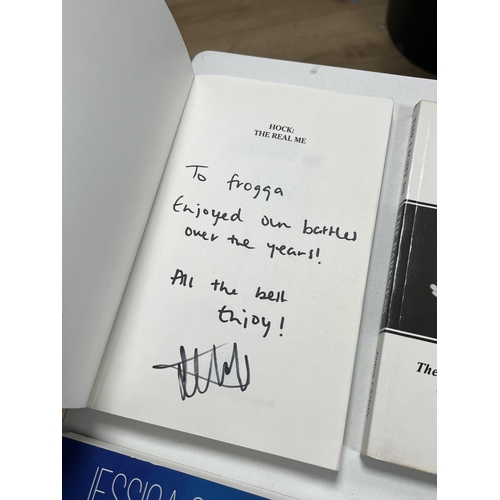 HOCK:
THE REAL ME
To Frogga
Enjoyed our battles
over the years!
All the best
Enjoy!
The
JESSICA